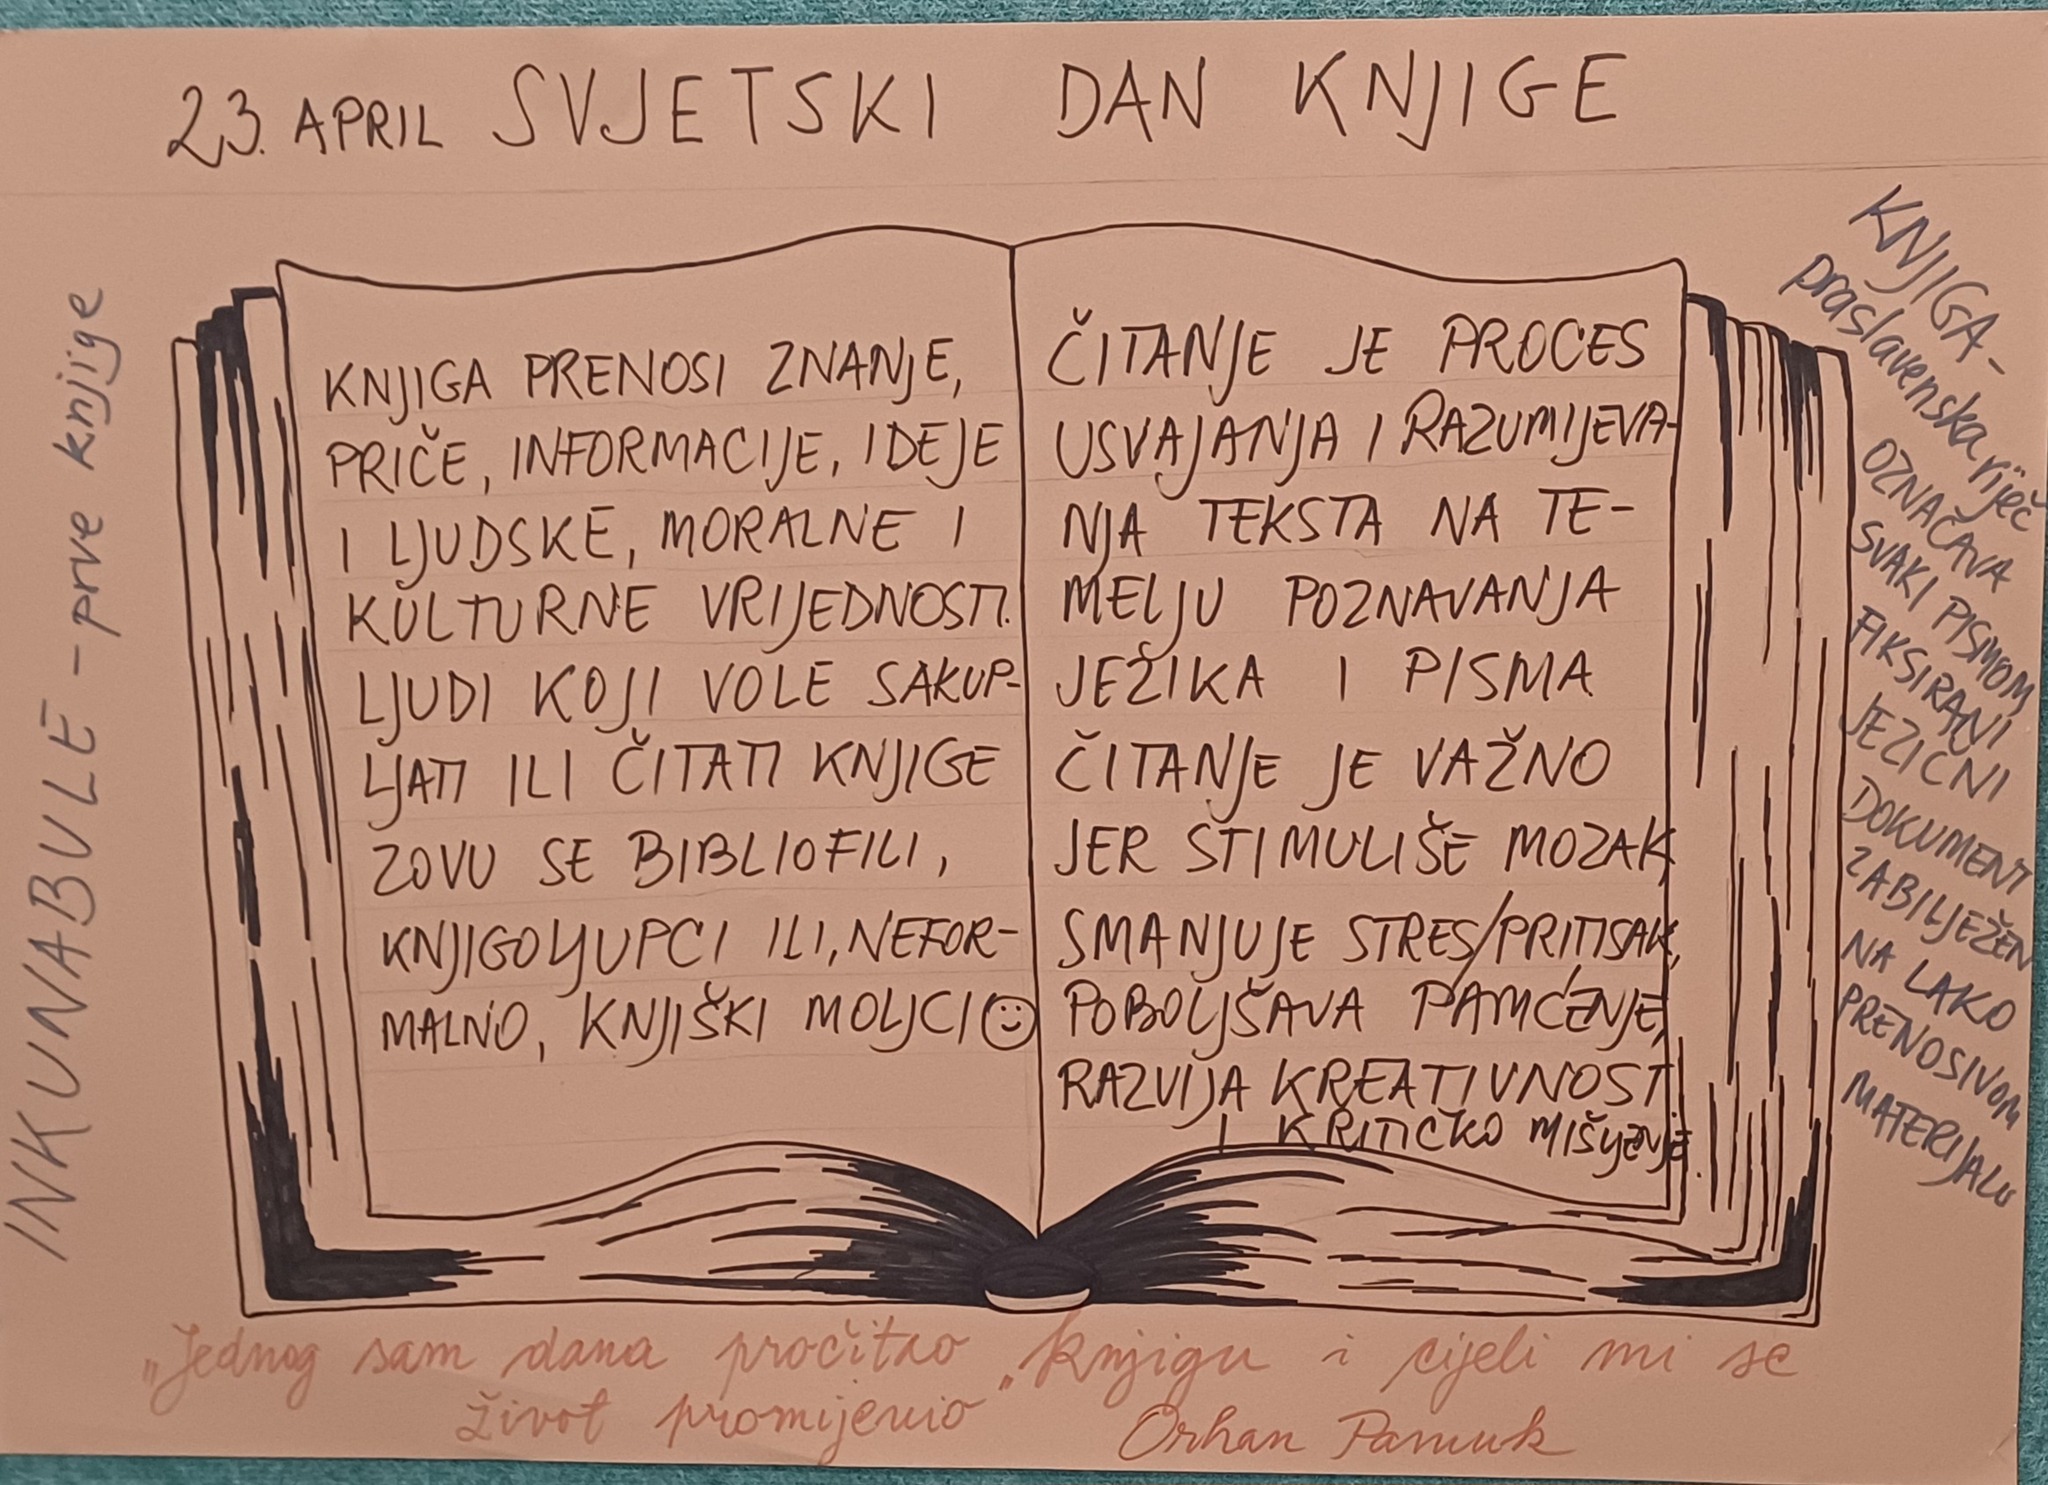 23. APRIL SVJETSKI DAN KNJIGE
INKUNABULE - prve knjige
KNJIGA PRENOSI ZNANJE,
PRIČE, INFORMACIJE, IDEJE
I LJUDSKE, MORALNE I
KULTURNE VRIJEDNOSTI.
LJUDI KOJI VOLE SAKUP-
LJATI ILI ČITATI KNJIGE
ZOVU SE BIBLIOFILI,
KNJIGOLJUPCI ILI, NEFOR-
MALNO, KNJIŠKI MOLJCI☺
ČITANJE JE PROCES
USVAJANJA I RAZUMIJEVA-
NJA TEKSTA NA TE-
MELJU POZNAVANJA
JEZIKA I PISMA
ČITANJE JE VAŽNO
JER STIMULIŠE MOZAK,
SMANJUJE STRES/PRITISAK,
POBOLJŠAVA PAMĆENJE,
RAZVIJA KREATIVNOST
I KRITIČKO MIŠLJENJE.
KNJIGA-
praslavenska riječ
OZNAČAVA
SVAKI PISMOM
FIKSIRANI
JEZIČNI
DOKUMENT
ZABILJEŽEN
NA LAKO
PRENOSIVOM
MATERIJALU
„Jednog sam dana pročitao knjigu i cijeli mi se
život promijenio„ Orhan Pamuk